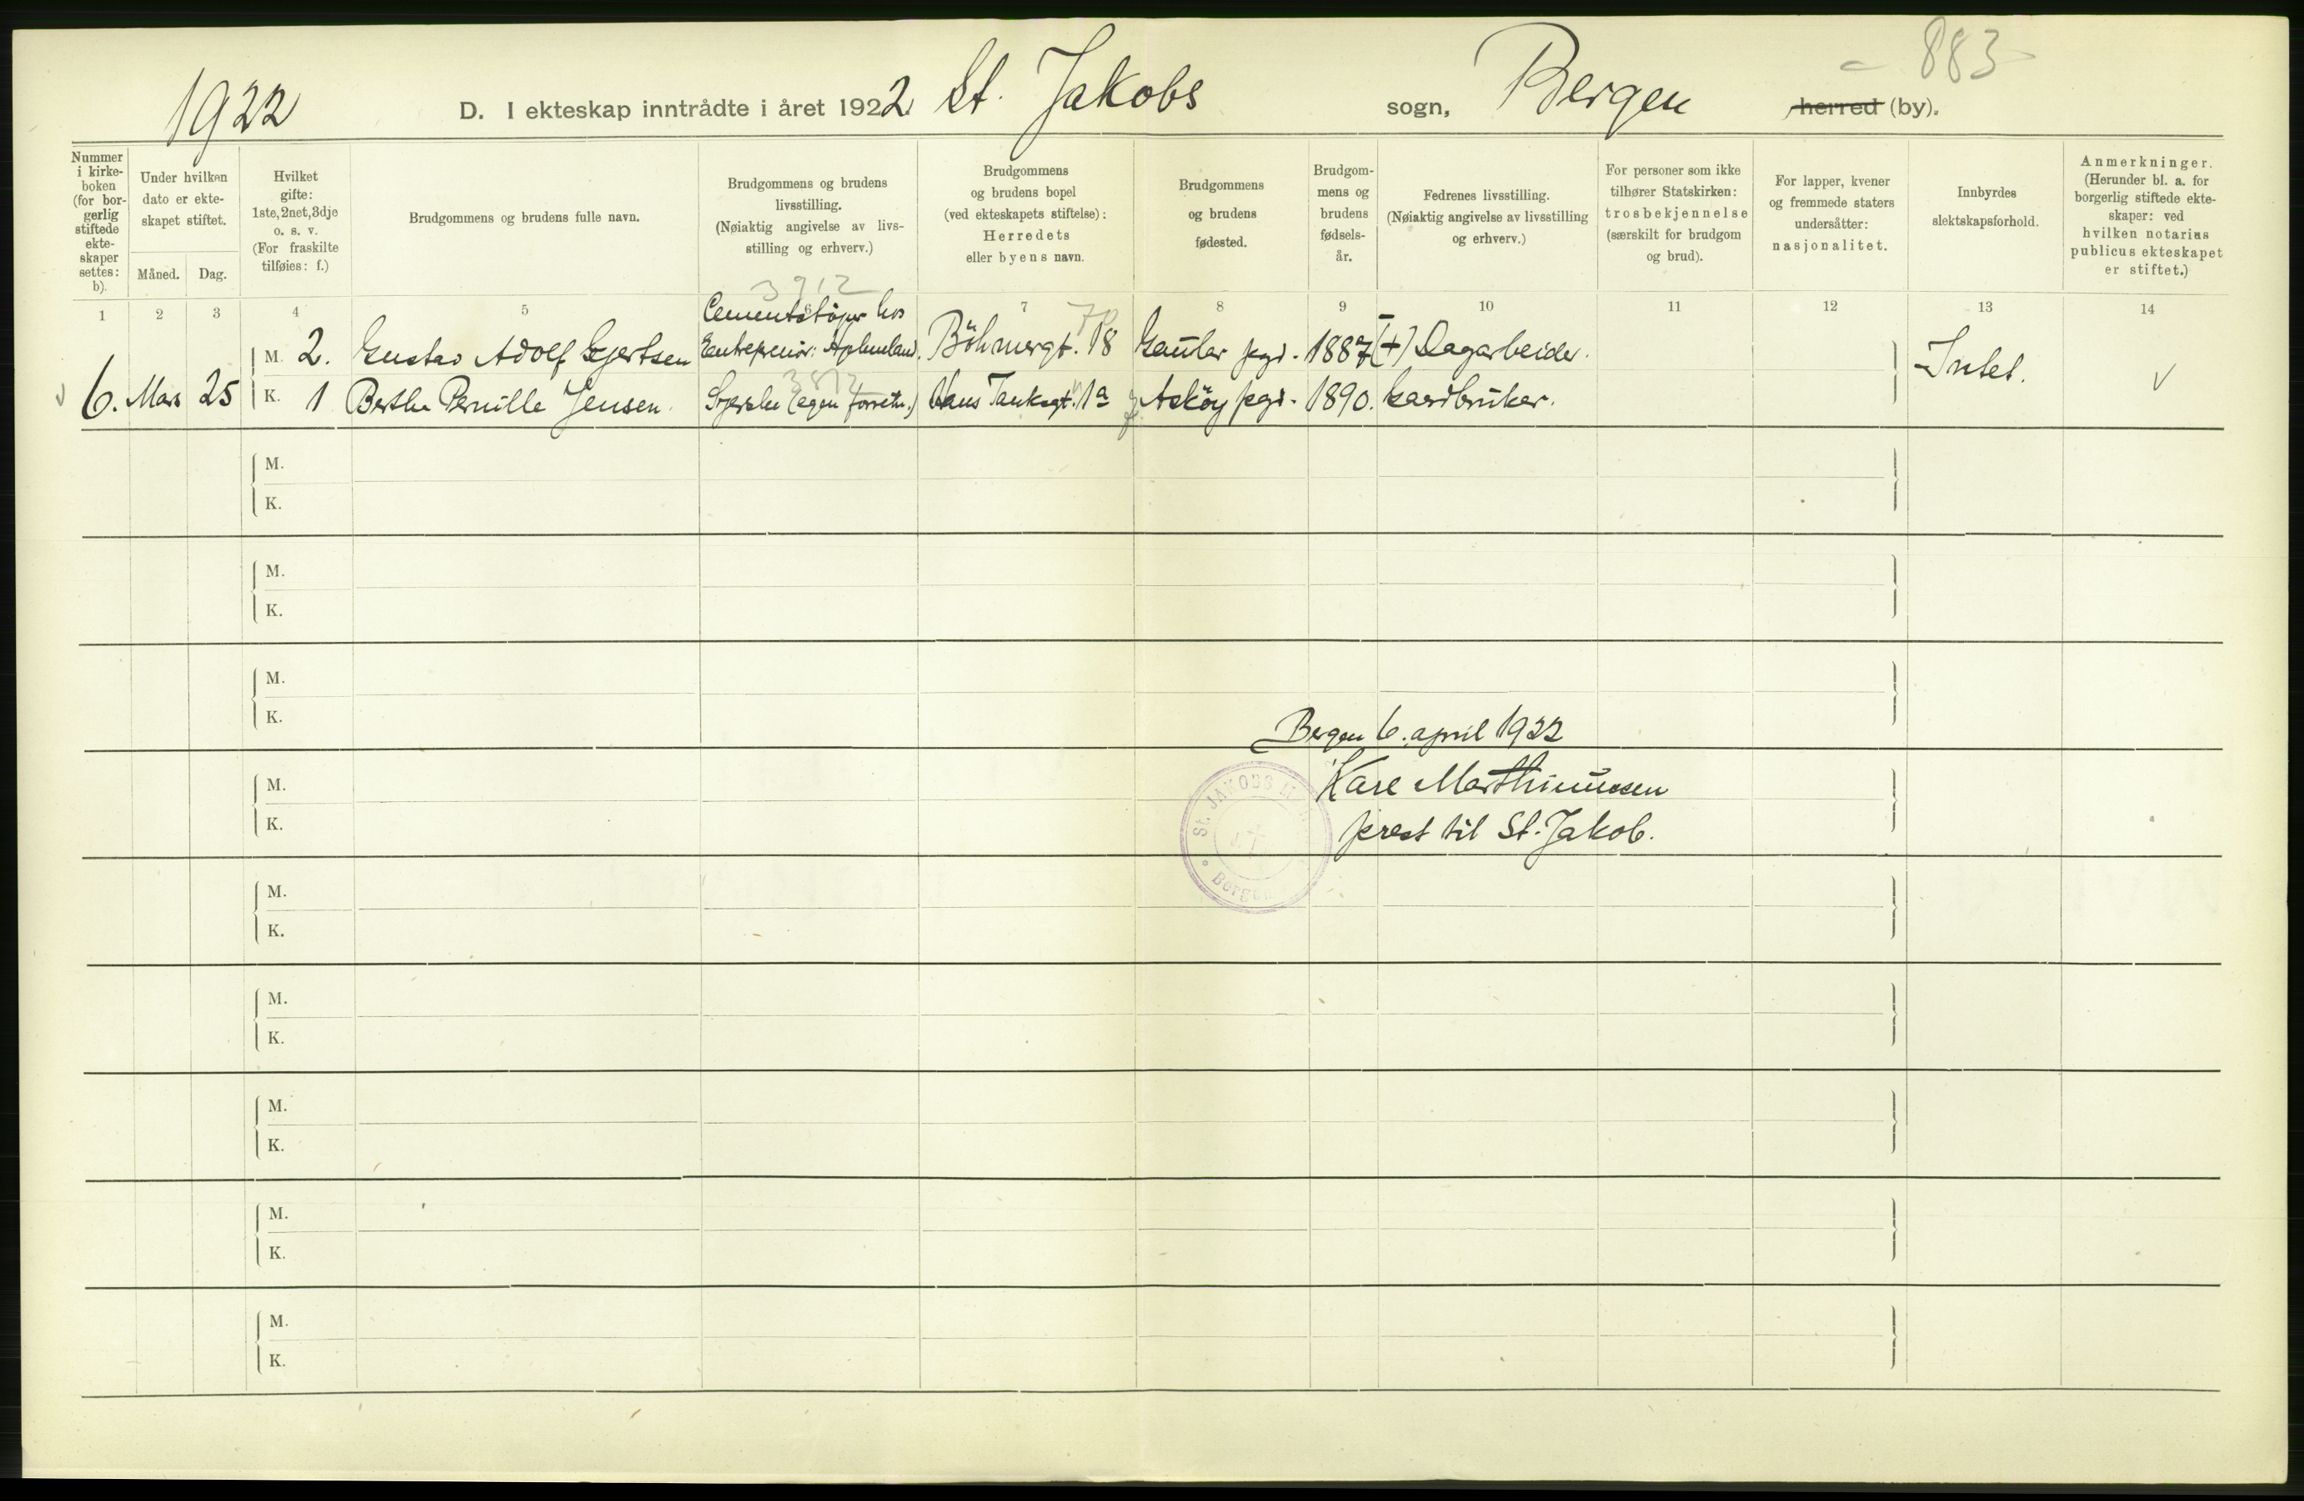 883
1922 D. I ekteskap inntrådte i året 1922 St. Jakobs sogn, Bergen herred (by).
Nummer i kirkeboken (for borgerlig stiftede ekteskaper settes: b).
Under hvilken dato er ekteskapet stiftet.
Måned. Dag.
Hvilket gifte: 1ste, 2net, 3dje o. s. v. (For fraskilte tilføies: f.)
Brudgommens og brudens fulle navn.
Brudgommens og brudens livsstilling. (Nøiaktig angivelse av livsstilling og erhverv.)
Brudgommens og brudens bopel (ved ekteskapets stiftelse): Herredets eller byens navn.
Brudgommens og brudens fødested.
Brudgommens og brudens fødselsår.
Fedrenes livsstilling. (Nøiaktig angivelse av livsstilling og erhverv.)
For personer som ikke tilhører Statskirken: trosbekjennelse (særskilt for brudgom og brud).
For lapper, kvener og fremmede staters undersåtter: nasjonalitet.
Innbyrdes slektskapsforhold.
Anmerkninger. (Herunder bl. a. for borgerlig stiftede ekteskaper: ved hvilken notarius publicus ekteskapet er stiftet.)
3912
1 2 3 4 5 7 8 9 10 11 12 13 14
Cementstøper hos
M. 2. Gustav Adolf Gjertsen Entreprenør Böhmergt. 18 Gaular pgd. 1887 (+) Dagarbeider. Intet.
6. Mars 25 K. 1 Berthe Pernille Jensen. Syerske (egen forretn.) Hans Tanksgt. 1a Askøy pgd. 1890. Gaardbruker. v
M.
K.
M.
K.
M.
K.
Bergen 6. april 1922
M. Karl Marthinussen
K. prest til St. Jakob.
St. JAKOBS
Bergen
M.
K.
M.
K.
M.
K.
M.
K.
M.
K.